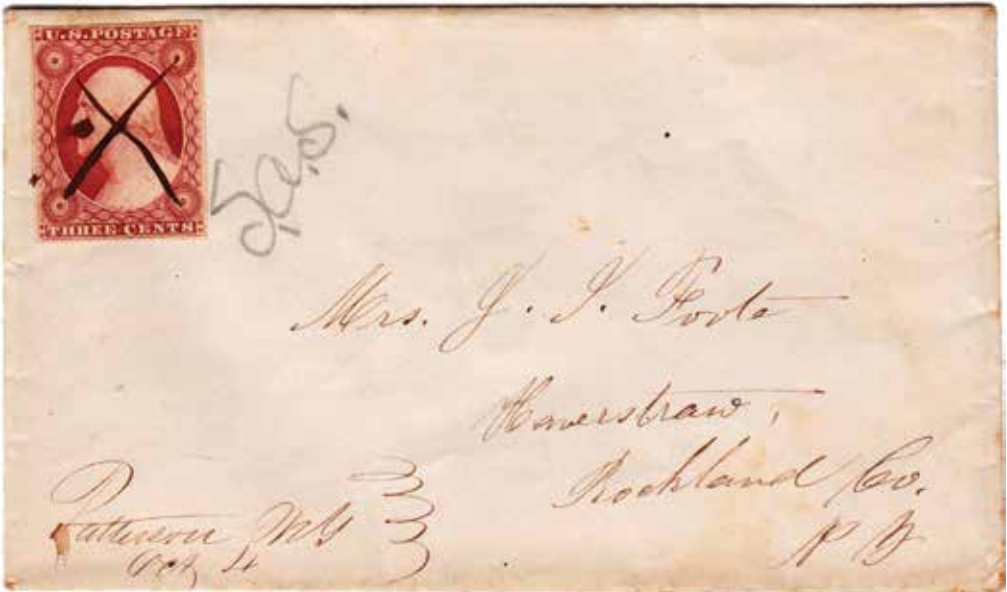 U.S. POSTAGE
THREE CENTS
S.a.S.
Mrs. J. I. Foote
Haverstraw,
Rockland Co.
N Y
Patterson NY
Oct 4